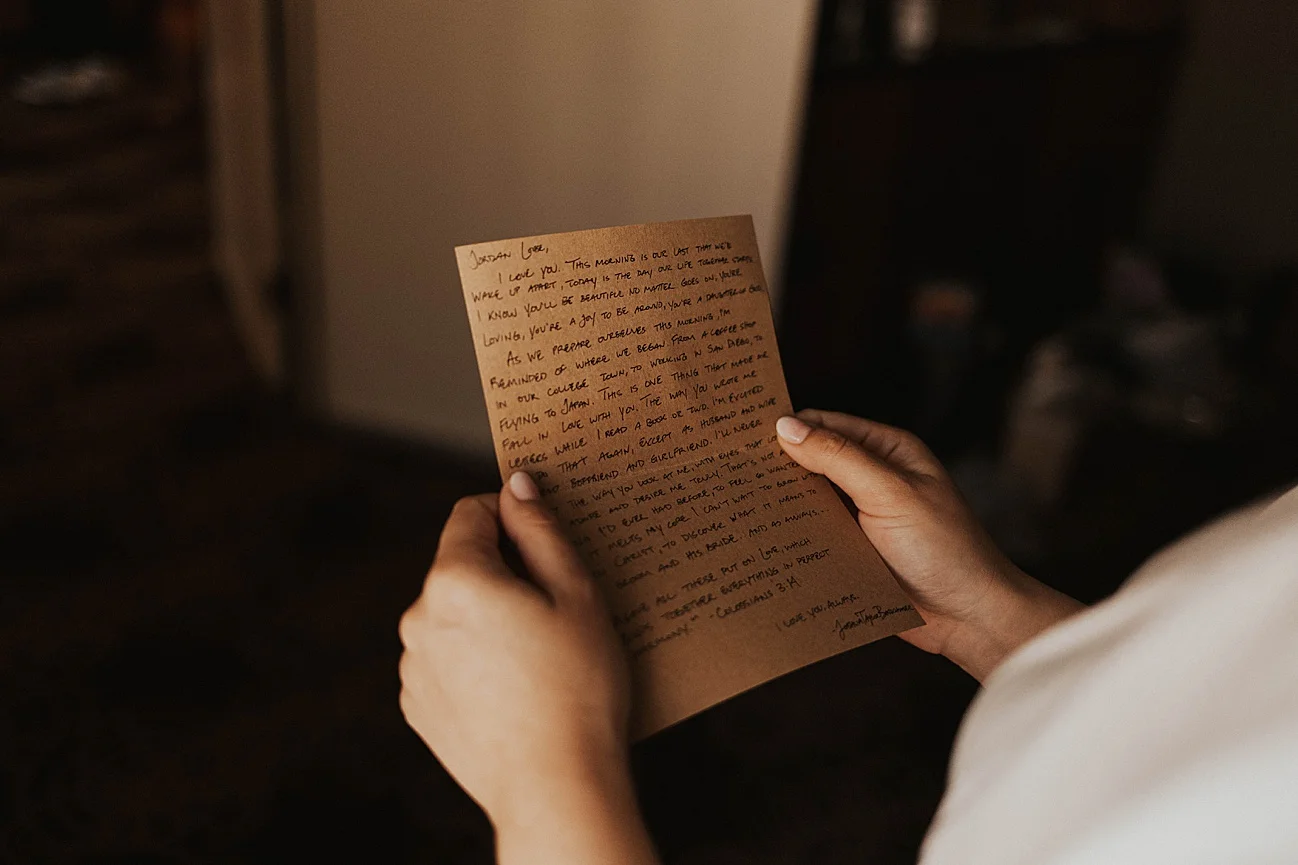 JORDAN LOVE,
I LOVE YOU. THIS MORNING IS OUR LAST THAT WE'D
WAKE UP APART, TODAY IS THE DAY OUR LIFE TOGETHER STARTS
I KNOW YOU'LL BE BEAUTIFUL NO MATTER GOES ON, YOU'RE
LOVING, YOU'RE A JOY TO BE AROUND, YOU'RE A DAUGHTER OF GOD,
AS WE PREPARE OURSELVES THIS MORNING, I'M
REMINDED OF WHERE WE BEGAN. FROM A COFFEE SHOP
IN OUR COLLEGE TOWN, TO WORKING IN SAN DIEGO, TO
FLYING TO JAPAN. THIS IS ONE THING THAT MADE ME
FALL IN LOVE WITH YOU. THE WAY YOU WROTE ME
LETTERS WHILE I READ A BOOK OR TWO. I'M EXCITED
THAT AGAIN, EXCEPT AS HUSBAND AND WIFE
BOYFRIEND AND GIRLFRIEND. I'LL NEVER
THE WAY YOU LOOK AT ME, WITH EYES THAT
AND DESIRE ME TRULY. THAT'S NOT
I'D EVER HAD BEFORE, TO FEEL SO WANTED
IT MELTS MY CORE I CAN'T WAIT TO GROW
CHRIST, TO DISCOVER WHAT IT MEANS TO
GROOM AND HIS BRIDE. AND AS ALWAYS...
ALL THESE PUT ON LOVE, WHICH
TOGETHER EVERYTHING IN PERFECT
HARMONY." - COLOSSIANS 3:14
I LOVE YOU, ALWAYS.